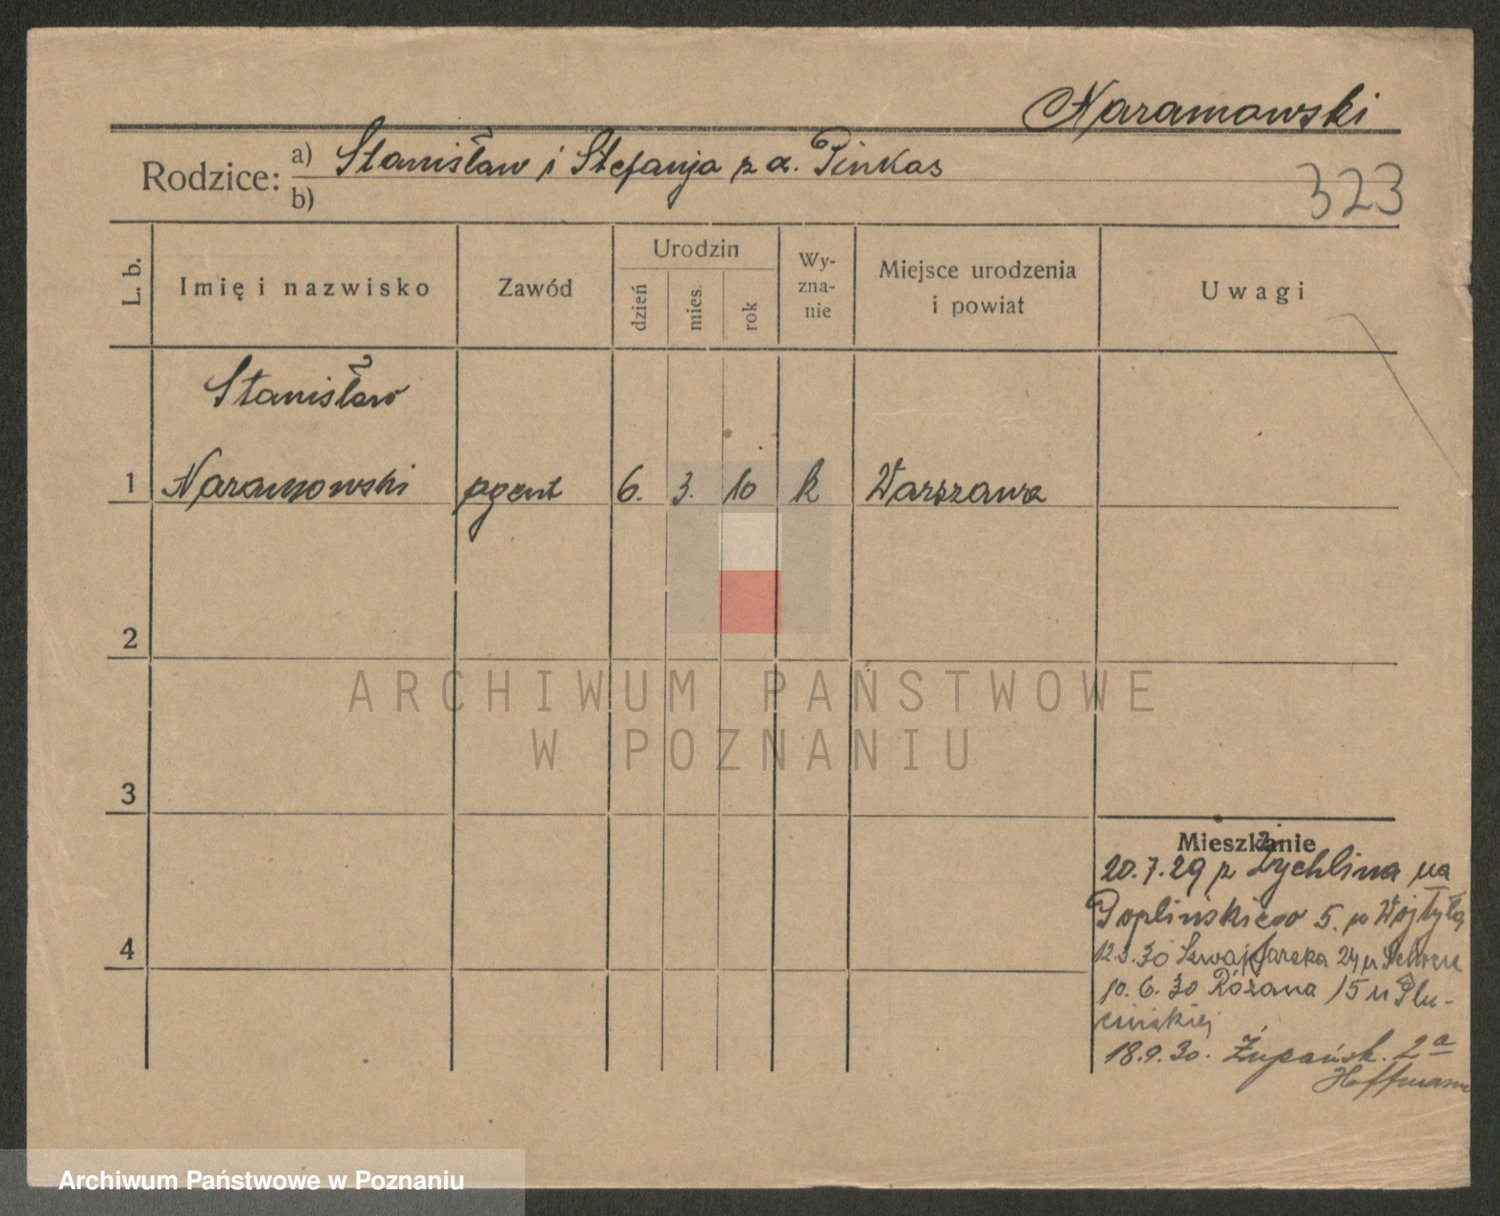 Naramowski
Rodzice: a) Stanisław i Stefanja z d. Pinkas
b)
323
L. b.
Imię i nazwisko
Zawód
Urodzin
dzień
mies.
rok
Wy-
zna-
nie
Miejsce urodzenia
i powiat
Uwagi
Stanisław
1 Naramowski agent 6. 3. 10 k Warszawa
2
ARCHIWUM PAŃSTWOWE
W POZNANIU
3
Mieszkanie
20.7.29 z Żychlina na
Poplińskiego 5. u Wojtyła
4
12.3.30 Szwajcarska 24 u
10.6.30 Różana 15 u Plu-
cińskiej
18.9.30. Żupańsk. 2a
Hoffmann
Archiwum Państwowe w Poznaniu